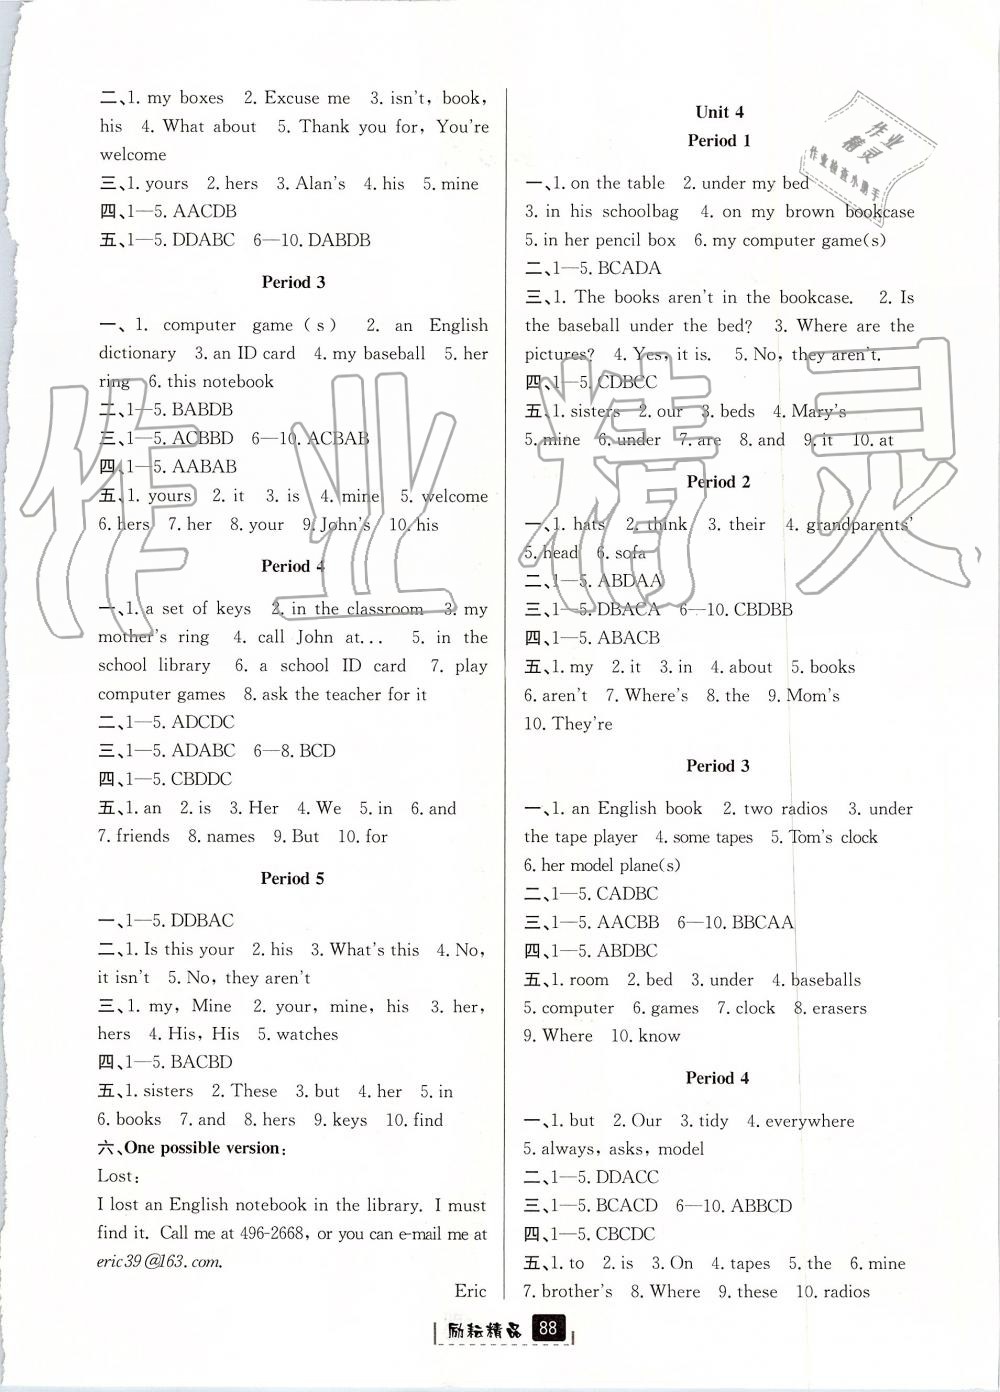 二、1. my boxes 2. Excuse me 3. isn't, book,
his 4. What about 5. Thank you for, You're
welcome
三、1. yours 2. hers 3. Alan's 4. his 5. mine
四、1—5. AACDB
五、1—5. DDABC 6—10. DABDB
Period 3
一、1. computer game(s) 2. an English
dictionary 3. an ID card 4. my baseball 5. her
ring 6. this notebook
二、1—5. BABDB
三、1—5. ACBBD 6—10. ACBAB
四、1—5. AABAB
五、1. yours 2. it 3. is 4. mine 5. welcome
6. hers 7. her 8. your 9. John's 10. his
Period 4
一、1. a set of keys 2. in the classroom 3. my
mother's ring 4. call John at... 5. in the
school library 6. a school ID card 7. play
computer games 8. ask the teacher for it
二、1—5. ADCDC
三、1—5. ADABC 6—8. BCD
四、1—5. CBDDC
五、1. an 2. is 3. Her 4. We 5. in 6. and
7. friends 8. names 9. But 10. for
Period 5
一、1—5. DDBAC
二、1. Is this your 2. his 3. What's this 4. No,
it isn't 5. No, they aren't
三、1. my, Mine 2. your, mine, his 3. her,
hers 4. His, His 5. watches
四、1—5. BACBD
五、1. sisters 2. These 3. but 4. her 5. in
6. books 7. and 8. hers 9. keys 10. find
六、One possible version:
Lost:
I lost an English notebook in the library. I must
find it. Call me at 496-2668, or you can e-mail me at
eric39@163.com.
Eric
Unit 4
Period 1
一、1. on the table 2. under my bed
3. in his schoolbag 4. on my brown bookcase
5. in her pencil box 6. my computer game(s)
二、1—5. BCADA
三、1. The books aren't in the bookcase. 2. Is
the baseball under the bed? 3. Where are the
pictures? 4. Yes, it is. 5. No, they aren't.
四、1—5. CDBCC
五、1. sisters 2. our 3. beds 4. Mary's
5. mine 6. under 7. are 8. and 9. it 10. at
Period 2
一、1. hats 2. think 3. their 4. grandparents'
5. head 6. sofa
二、1—5. ABDAA
三、1—5. DBACA 6—10. CBDBB
四、1—5. ABACB
五、1. my 2. it 3. in 4. about 5. books
6. aren't 7. Where's 8. the 9. Mom's
10. They're
Period 3
一、1. an English book 2. two radios 3. under
the tape player 4. some tapes 5. Tom's clock
6. her model plane(s)
二、1—5. CADBC
三、1—5. AACBB 6—10. BBCAA
四、1—5. ABDBC
五、1. room 2. bed 3. under 4. baseballs
5. computer 6. games 7. clock 8. erasers
9. Where 10. know
Period 4
一、1. but 2. Our 3. tidy 4. everywhere
5. always, asks, model
二、1—5. DDACC
三、1—5. BCACD 6—10. ABBCD
四、1—5. CBCDC
五、1. to 2. is 3. On 4. tapes 5. the 6. mine
7. brother's 8. Where 9. these 10. radios
励耘精品 88
作业
精灵
作业检查小助手
作业精灵